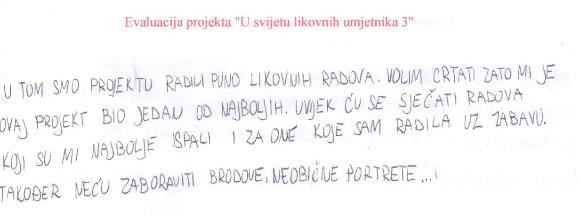 Evaluacija projekta "U svijetu likovnih umjetnika 3"
U TOM SMO PROJEKTU RADILI PUNO LIKOVNIH RADOVA. VOLIM CRTATI ZATO MI JE
OVAJ PROJEKT BIO JEDAN OD NAJBOLJIH. UVJEK ĆU SE SJEČATI RADOVA
KOJI SU MI NAJBOLJE ISPALI I ZA ONE KOJE SAM RADILA UZ ZABAVU.
TAKOĐER NEĆU ZABORAVITI BRODOVE, NEOBIČNE PORTRETE...!